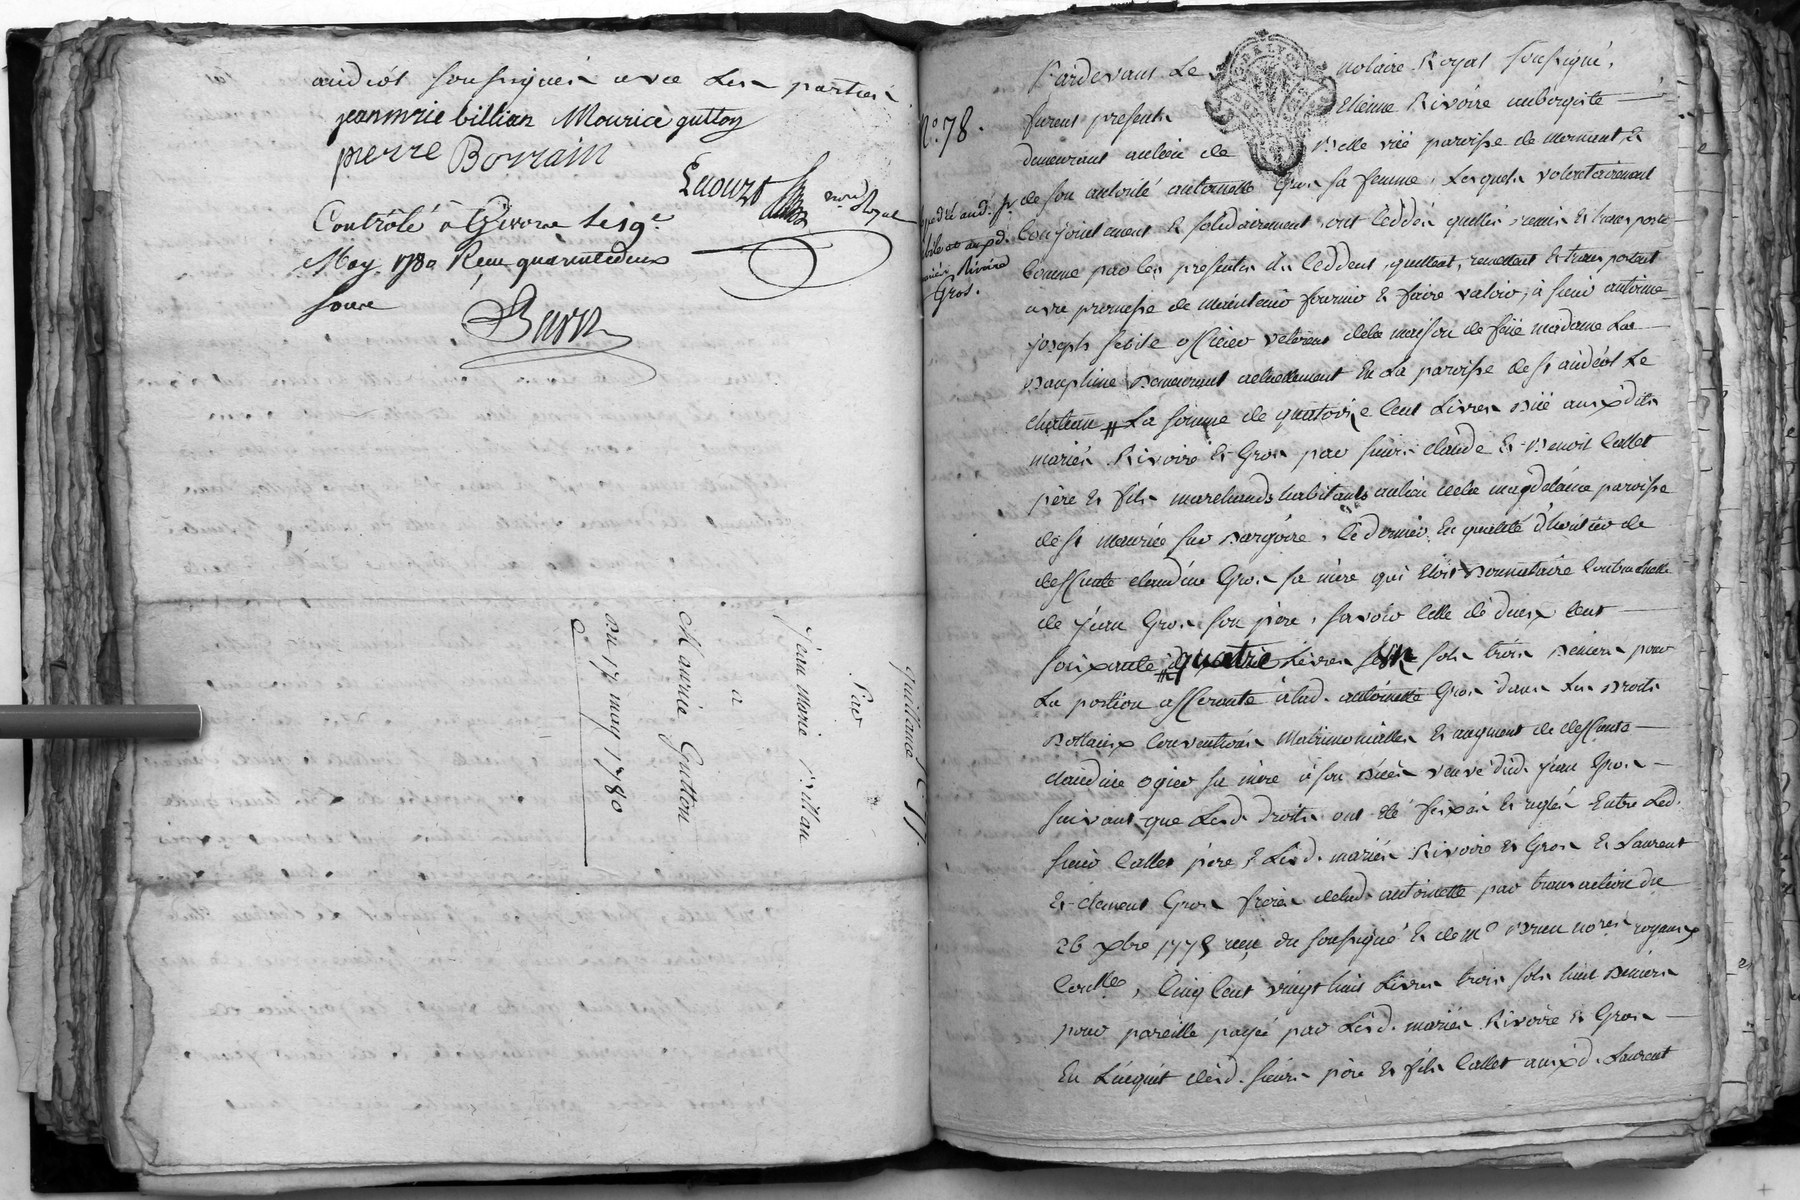 andéol soussignés avec les parties
jeanmrie billian Mourice gutton
pierre Borrain
nore Royal
Contrôlé à Givors le 19e
May 1780 Reçu quarantedeux
sous
quittance N. 77.
Par
Jean marie Billan
a
Maurice Gutton
Du 17 may 1780
No. 78.
Rivoire
Gros.
Pardevant Le notaire Royal soussigné,
furent présents Etienne Rivoire aubergiste
demeurant au lieu de Belle vüe paroisse de mornant, &
de son autorité antoinette Gros sa femme, Lesquels volontairement
Conjointement & solidairement ont Céddés quittés, remis & transportés
Comme par les présentes ils Céddent, quittent, remettent & transportent
avec promesse de maintenir fournir & faire valoir, à sieur antoine
joseph Sibile officier vétéran de la maison de feüe madame La
Dauphine Demeurant actuellement En La paroisse de St andéol Le
chateau La somme de quatorze Cent Livres Düe auxdits
mariés Rivoire & Gros par sieurs claude & Benoit Collet
père & fils marchands habitants au lieu de la magdelaine paroisse
de St maurice sur Dargoire, Ce dernier En qualité d'heritier de
deffunte claudine Gros sa mère qui étoit Donnataire Contractuelle
de jean Gros son père, savoir Celle de deux Cent
soixante quatre Livres sols trois Deniers pour
La portion afferante à lad. antoinette Gros dans Les Droits
Dottaux Conventions Matrimonialles & augment de deffunte
claudine ogier sa mère à son Décès veuve dud. jean Gros
suivant que Lesd. droits ont été fixés & reglés Entre Led.
sieur Collet père & Lesd. mariés Rivoire & Gros & Laurent
& clement Gros frères de lad. antoinette par transaction du
26 xbre 1775 reçu du soussigné & de me Brun nores royaux
Cinq Cent vingt huit Livres trois sols huit Deniers
pour pareille payée par Lesd. mariés Rivoire & Gros
En L'acquit desd. sieurs père & fils Collet auxd. Laurent